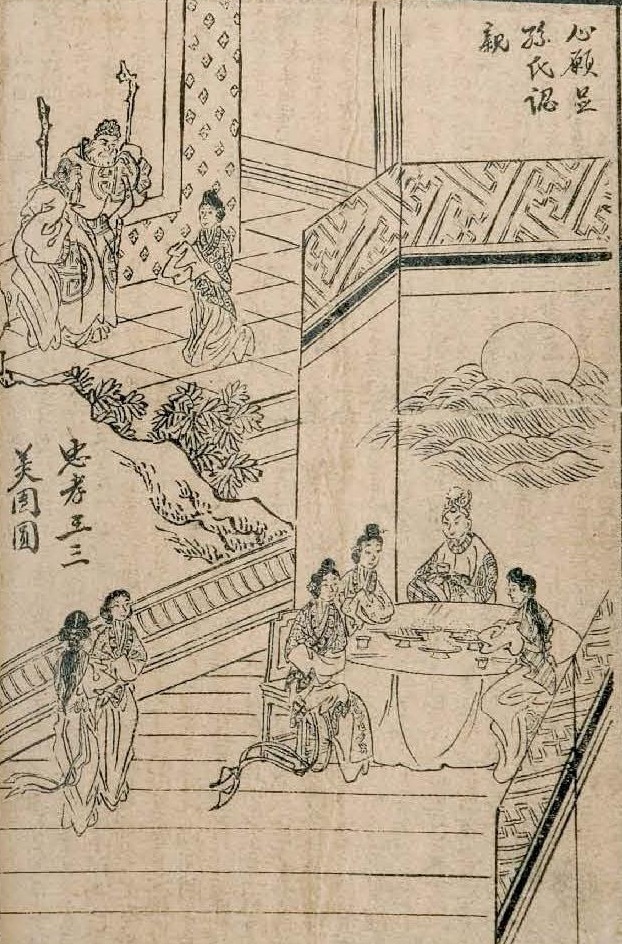 心願足
孫氏認
親
忠孝王三
美團圓